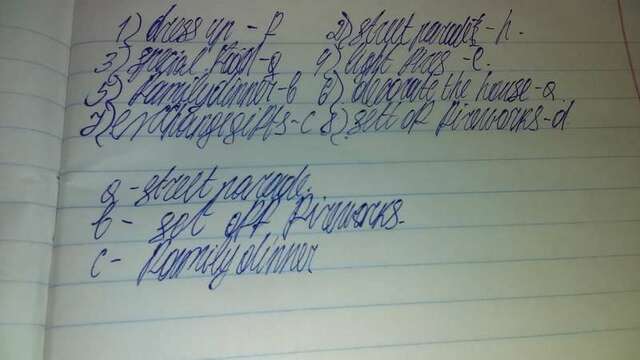 1) dress up - f 2) street parade - h.
3) special food - g 4) light fires - e.
5) family dinner - b 6) decorate the house - a
7) exchange gifts - c 8) sett off fireworks - d
a - street parade.
b - set off fireworks.
c - family dinner